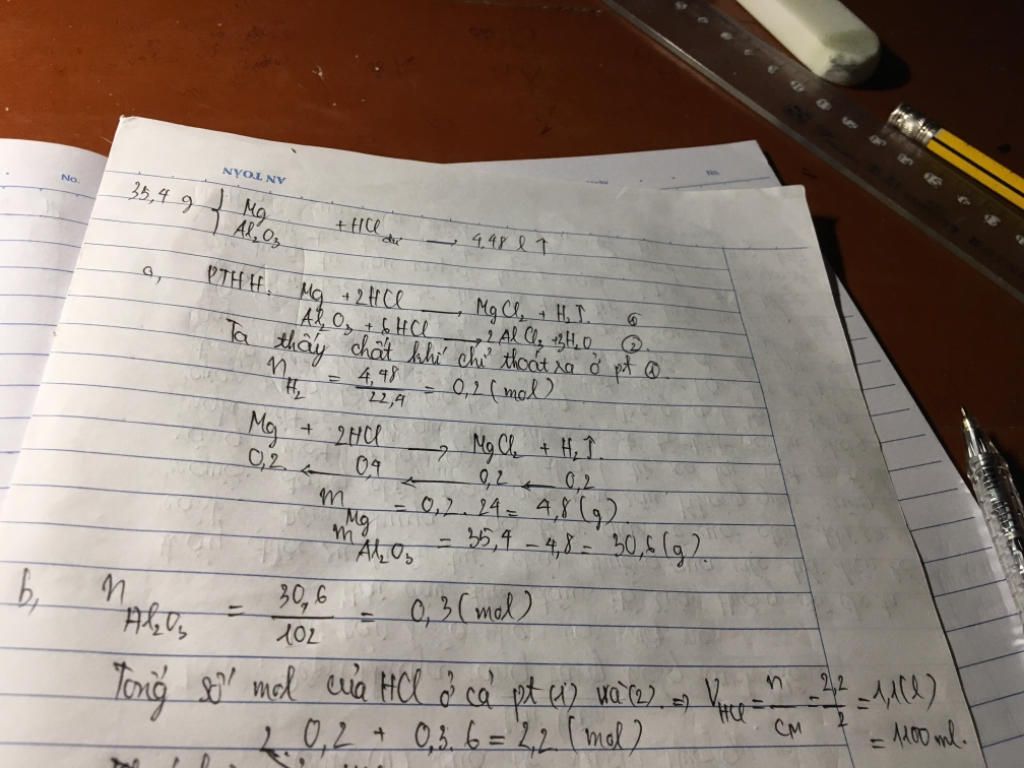 No.
AN TOÀN
No.
35,4 g { Mg Al₂O₃ + HCl dư → 4,48 l ↑
a, PTHH: Mg + 2HCl → MgCl₂ + H₂↑ ①
Al₂O₃ + 6HCl → 2AlCl₃ + 3H₂O ②
Ta thấy chất khí chỉ thoát ra ở pt ①
n H₂ = 4,48 / 22,4 = 0,2 (mol)
Mg + 2HCl → MgCl₂ + H₂↑.
0,2 ← 0,4 ← 0,2 ← 0,2
m Mg = 0,2 . 24 = 4,8 (g)
m Al₂O₃ = 35,4 - 4,8 = 30,6 (g)
b, n Al₂O₃ = 30,6 / 102 = 0,3 (mol)
Tổng số mol của HCl ở cả pt (1) và (2). ⇒ V HCl = n / CM = 2,2 / 2 = 1,1 (l)
2. 0,2 + 0,3. 6 = 2,2 (mol) = 1100 ml.